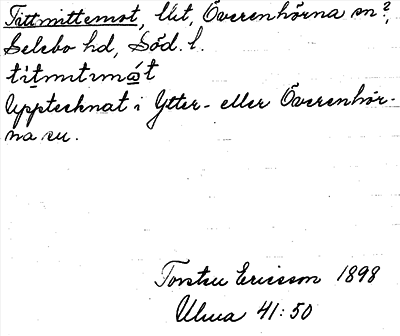 Tittmittemot, lht, Överenhörna sn?,
Selebo hd, Söd. l.
titmitmǻt
Upptecknat i Ytter- eller Överenhör-
na sn.
Torsten Ericsson 1898
Ulma 41:50